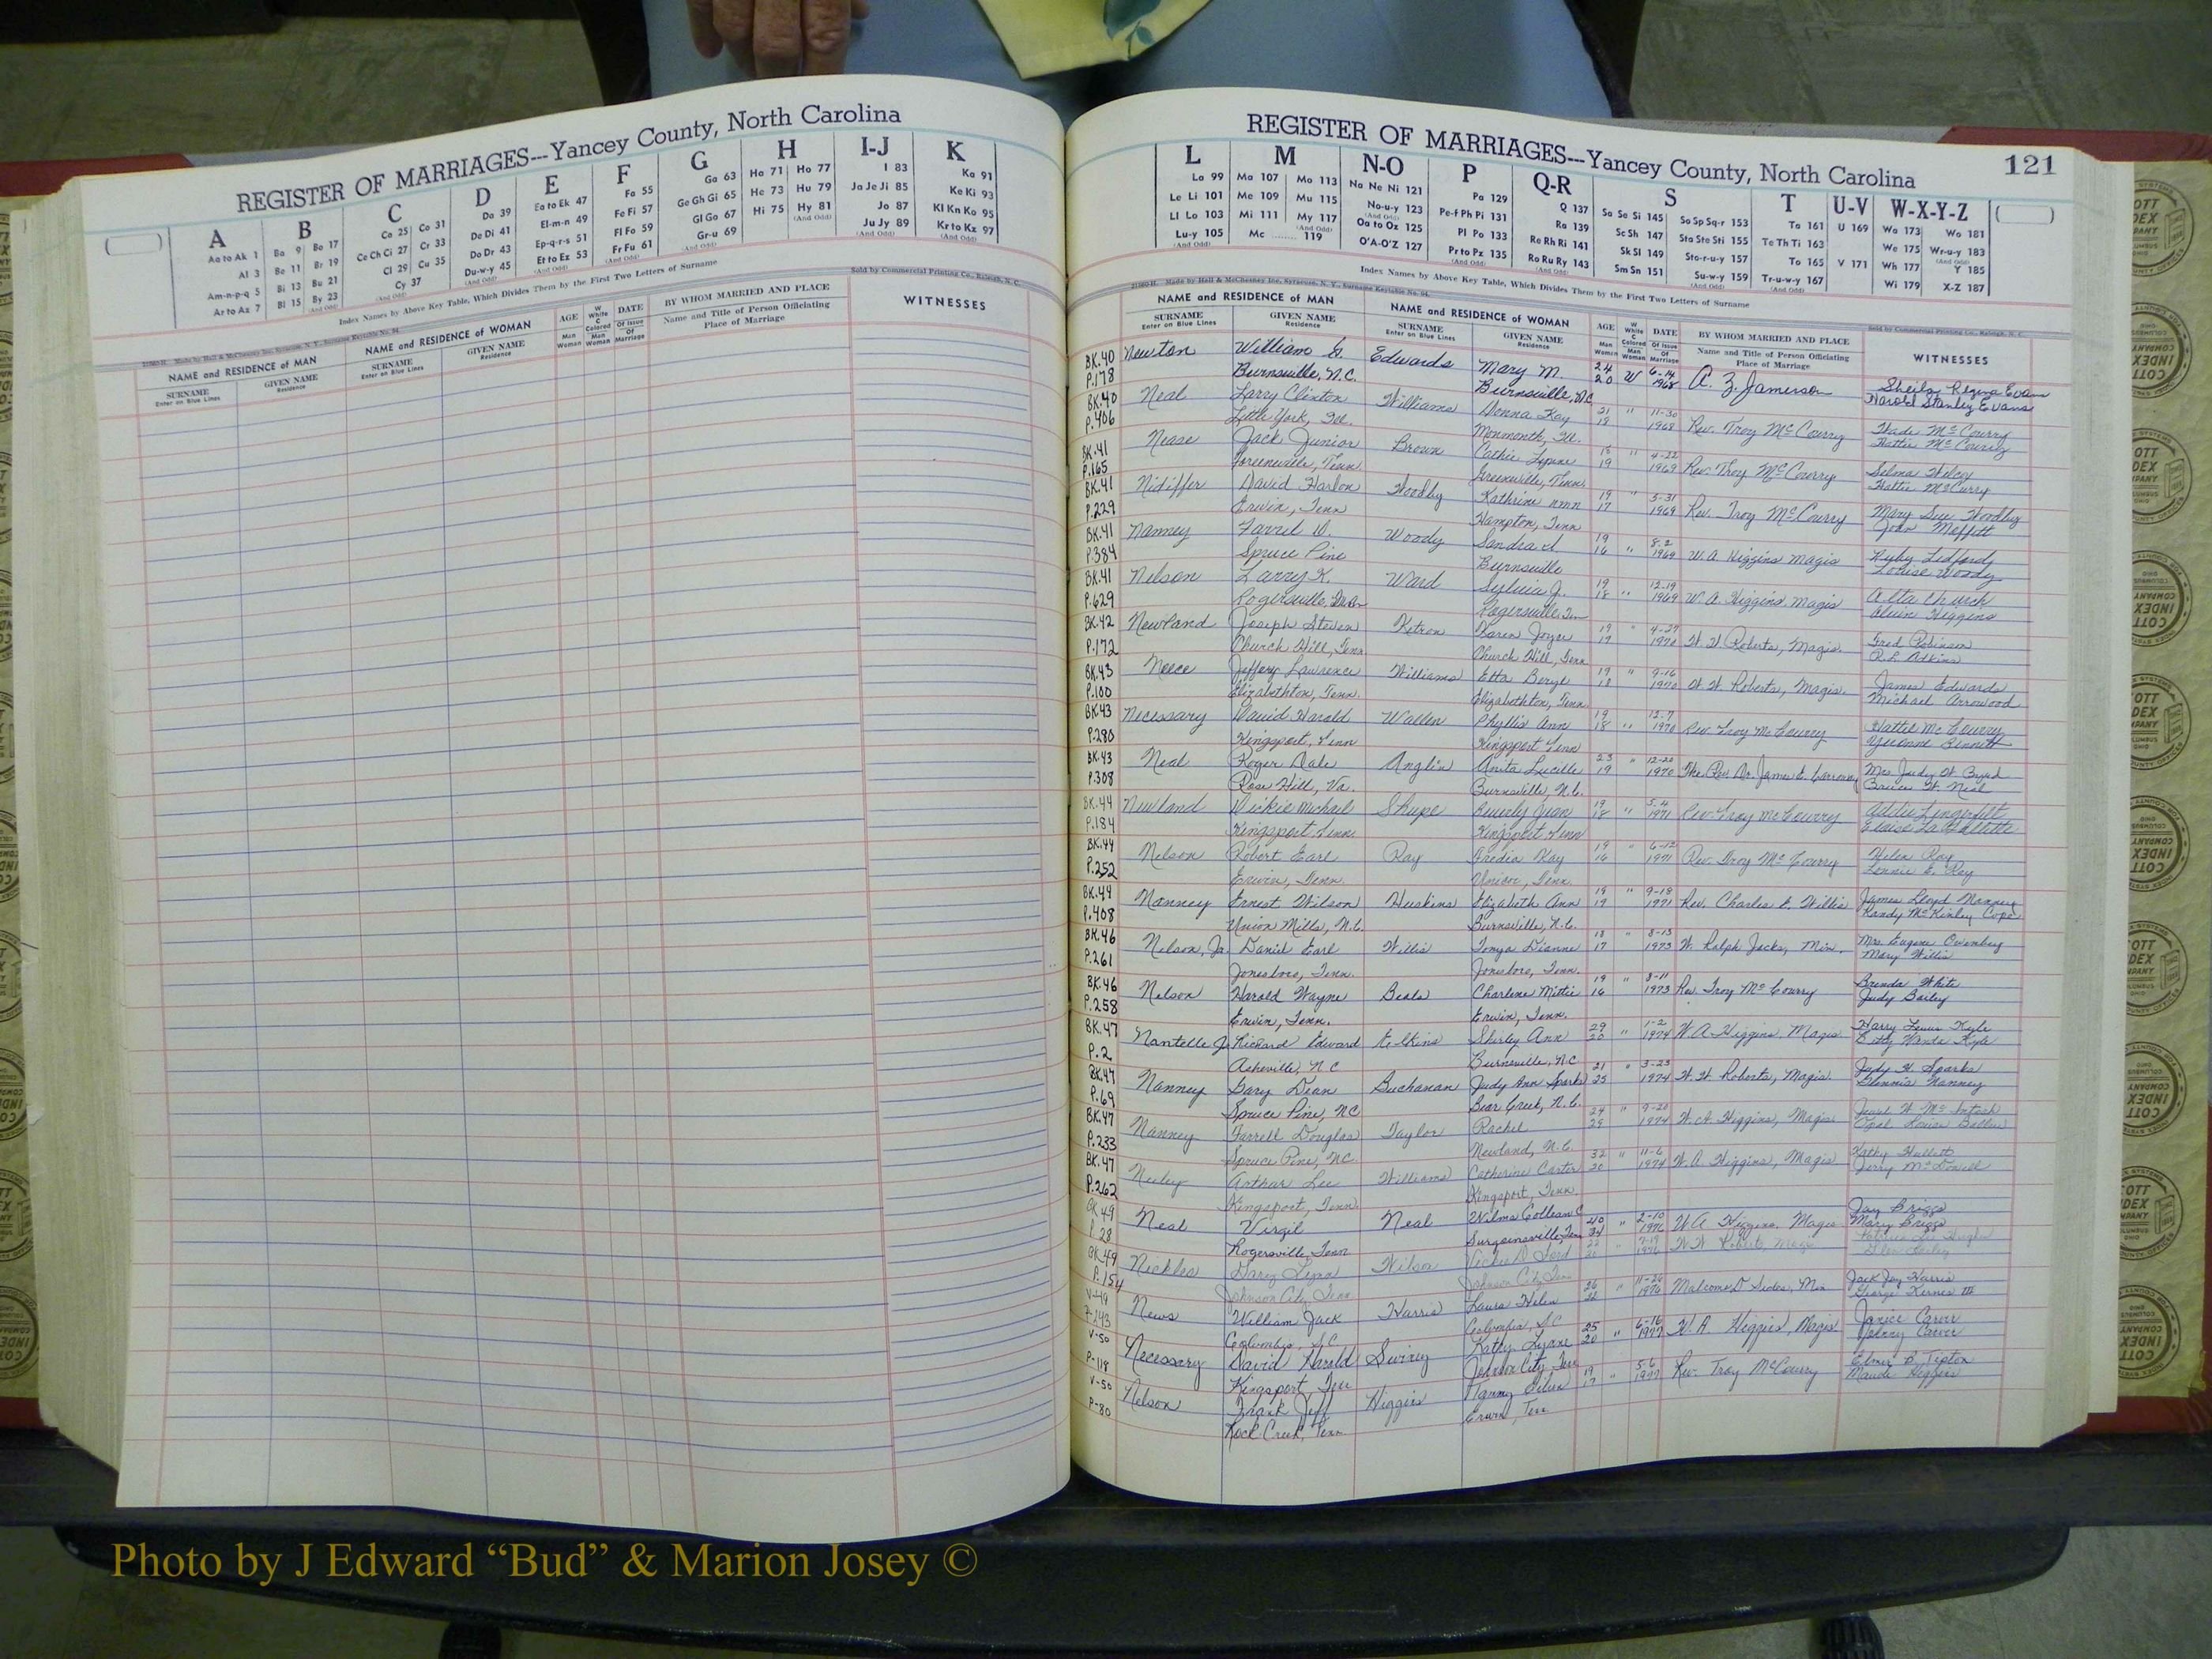 REGISTER OF MARRIAGES---Yancey County, North Carolina
A B C D E F G H I-J K
Aa to Ak 1
Al 3
Am-n-p-q 5
Ar to Az 7
Ba 9 Bo 17
Be 11 Br 19
Bi 13 Bu 21
Bl 15 By 23
(And Odd)
Ca 25 Co 31
Ce Ch Ci 27 Cr 33
Cl 29 Cu 35
(And Odd) Cy 37
Da 39
De Di 41
Do Dr 43
Du-w-y 45
(And Odd)
Ea to Ek 47
El-m-n 49
Ep-q-r-s 51
Et to Ez 53
(And Odd)
Fa 55
Fe Fi 57
Fl Fo 59
Fr Fu 61
(And Odd)
Ga 63
Ge Gh Gi 65
Gl Go 67
Gr-u 69
(And Odd)
Ha 71 Ho 77
He 73 Hu 79
Hi 75 Hy 81
(And Odd)
I 83
Ja Je Ji 85
Jo 87
Ju Jy 89
(And Odd)
Ka 91
Ke Ki 93
Kl Kn Ko 95
Kr to Kz 97
(And Odd)
Index Names by Above Key Table, Which Divides Them by the First Two Letters of Surname
Sold by Commercial Printing Co., Raleigh, N. C.
NAME and RESIDENCE of MAN
SURNAME
Enter on Blue Lines
GIVEN NAME
Residence
NAME and RESIDENCE of WOMAN
SURNAME
Enter on Blue Lines
GIVEN NAME
Residence
AGE
Man
Woman
W
White
C
Colored
Man
Woman
DATE
Of Issue
Of
Marriage
BY WHOM MARRIED AND PLACE
Name and Title of Person Officiating
Place of Marriage
WITNESSES
REGISTER OF MARRIAGES---Yancey County, North Carolina
121
L M N-O P Q-R S T U-V W-X-Y-Z
La 99
Le Li 101
Ll Lo 103
Lu-y 105
(And Odd)
Ma 107 Mo 113
Me 109 Mu 115
Mi 111 My 117
Mc 119
(And Odd)
Na Ne Ni 121
No-u-y 123
(And Odd)
Oa to Oz 125
O'A-O'Z 127
Pa 129
Pe-f Ph Pi 131
Pl Po 133
Pr to Pz 135
(And Odd)
Q 137
Ra 139
Re Rh Ri 141
Ro Ru Ry 143
(And Odd)
Sa Se Si 145 So Sp Sq-r 153
Sc Sh 147 Sta Ste Sti 155
Sk Sl 149 Sto-r-u-y 157
Sm Sn 151 Su-w-y 159
(And Odd)
Ta 161
Te Th Ti 163
To 165
Tr-u-w-y 167
(And Odd)
U 169
V 171
Wa 173 Wo 181
We 175 Wr-u-y 183
(And Odd)
Wh 177 Y 185
Wi 179 X-Z 187
Index Names by Above Key Table, Which Divides Them by the First Two Letters of Surname
Sold by Commercial Printing Co., Raleigh, N. C.
NAME and RESIDENCE of MAN
SURNAME
Enter on Blue Lines
GIVEN NAME
Residence
NAME and RESIDENCE of WOMAN
SURNAME
Enter on Blue Lines
GIVEN NAME
Residence
AGE
Man
Woman
W
White
C
Colored
Man
Woman
DATE
Of Issue
Of
Marriage
BY WHOM MARRIED AND PLACE
Name and Title of Person Officiating
Place of Marriage
WITNESSES
BK.40 Newton William G. Edwards Mary M. 24 6-14 Sheila Regina Evans
P.178 Burnsville, N.C. Burnsville, N.C. 20 W 1968 A. Z. Jamerson Harold Stanley Evans
BK.40 Neal Larry Clinton Williams Donna Kay 21 " 11-30 Wade McCourry
P.406 Little York, Ill. Monmouth, Ill. 18 1968 Rev. Troy McCourry Hattie McCourry
BK.41 Nease Jack Junior Brown Cathie Lynne " 4-22 Selma
P.165 Greeneville, Tenn. Greeneville, Tenn. 19 1969 Rev. Troy McCourry Hattie McCurry
BK.41 Nidiffer David Harlon Woodby Kathrine nmn 19 " 5-31 Mary Sue Woodby
P.229 Erwin, Tenn Hampton, Tenn 17 1969 Rev. Troy McCourry John Moffitt
BK.41 Nanney Farrel D. Woody Sandra 19 8-2 Ruby Ledford
P.384 Spruce Pine Burnsville 16 " 1969 W.A. Higgins Magis Louise Woody
BK.41 Nelson Larry K. Ward Sylvia J. 19 12-19 Alta Church
P.629 Rogersville, Tenn Rogersville, Tenn 18 " 1969 W.A. Higgins, Magis Alvin Higgins
BK.42 Newland Joseph Steven Ketron Karen Joyce 19 " 4-27 Fred Robinson
P.172 Church Hill, Tenn Church Hill, Tenn 19 1970 W. W. Roberts, Magis. R.L. Adkins
BK.43 Neece Jeffery Lawrence Williams Etta Beryl 19 " 9-16 James Edwards
P.100 Elizabethton, Tenn. Elizabethton, Tenn. 18 1970 W. W. Roberts, Magis. Michael Arrowood
BK.43 Necessary David Harold Wallen Phyllis Ann 19 12-7 Hattie McCourry
P.280 Kingsport, Tenn Kingsport Tenn 18 " 1970 Rev. Troy McCourry Bennett
BK.43 Neal Roger Dale Anglin Anita Lucille 23 " 12-20 Mrs Judy W. Byrd
P.308 Rose Hill, Va. Burnsville, N.C. 19 1970 The Rev. Dr. James E. Bruce W. Neal
BK.44 Newland Dickie Michael Shupe Beverly Jean 19 5-4 Addie Lingerfelt
P.184 Kingsport, Tenn. Kingsport, Tenn 18 " 1971 Rev. Troy McCourry
BK.44 Nelson Robert Earl Ray Fredia Kay 19 " 6-12 Helen Ray
P.252 Erwin, Tenn. Unicoi, Tenn. 16 1971 Rev. Troy McCourry Lonnie E. Ray
BK.44 Nanney Ernest Wilson Huskins Elizabeth Ann 19 " 9-18 James Lloyd Nanney
P.408 Union Mills, N.C. Burnsville, N.C. 19 1971 Rev. Charles E. Willis Randy McKinley Cope
BK.46 Nelson, Jr. Daniel Earl Willis Tonya Dianne 18 " 8-13 Mrs. Eugene Ownbey
P.261 Jonesboro, Tenn. Jonesboro, Tenn. 17 1973 W. Ralph Jacks, Min. Mary Willis
BK.46 Nelson Harold Wayne Beals Charlene Mittie 19 " 8-11 Brenda White
P.258 Erwin, Tenn. Erwin, Tenn. 16 1973 Rev. Troy McCourry Judy Bailey
BK.47 Nantelle Jr Richard Edward Elkins Shirley Ann 29 1-2 Harry Kyle
P.2 Asheville, N C Burnsville, N.C 20 " 1974 W.A. Higgins, Magis Kyle
BK.47 Nanney Gary Dean Buchanan Judy Ann Sparks 21 " 3-23 Judy H. Sparks
P.69 Spruce Pine, NC Bear Creek, N.C. 25 1974 W. W. Roberts, Magis. Glennis Nanney
BK.47 Nanney Farrell Douglas Taylor Rachel 24 " 9-20 Jewel W. McIntosh
P.233 Spruce Pine, NC. Newland, N.C. 29 1974 W.A. Higgins, Magis Opal Louise
BK.47 Neeley Arthur Lee Williams Catherine Carter 32 " 11-6 Kathy
P.262 Kingsport, Tenn. Kingsport, Tenn. 20 1974 W.A. Higgins, Magis Jerry McDowell
BK.49 Neal Virgil Neal Wilma Colleen C 40 " 2-10 Jay Briggs
P. 28 Rogersville, Tenn Surgoinsville, Tenn 34 1976 W.A. Higgins, Magis Mary Briggs
BK.49 Nickles Gary Lynn Wilson Vickie D. Ford " 7-19
P.154 Johnson City, Tenn Johnson City, Tenn 1976 W.W. Roberts, Magis
V-49 News William Jack Harris Laura Helen 26 " 11-26 Jack Jay Harris
P-243 Columbia, S.C Columbia, S.C 22 1976 Malcome D. Min George III
V-50 Necessary David Harold Swiney Kathy Lynne 25 6-16 Janice Carver
P-118 Kingsport, Tenn Johnson City, Tenn 20 " 1977 W. A. Higgins, Magis Johnny Carver
V-50 Nelson Frank Jeff Higgins 19 5-6 Elmer B. Tipton
P-80 Rock Creek, Tenn Erwin, Tenn 17 " 1977 Rev. Troy McCourry Maude Higgins
Photo by J Edward “Bud” & Marion Josey ©